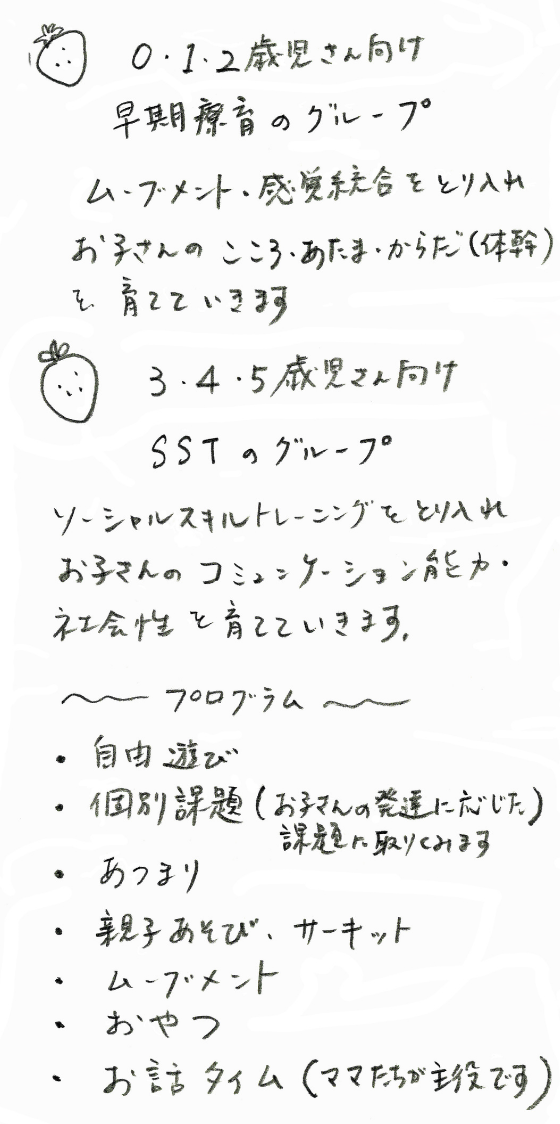 0・1・2歳児さん向け
早期療育のグループ
ムーブメント・感覚統合をとり入れ
お子さんの こころ・あたま・からだ(体幹)
を 育てていきます
3・4・5歳児さん向け
SSTのグループ
ソーシャルスキルトレーニングをとり入れ
お子さんのコミュニケーション能力・
社会性を育てていきます。
〜〜 プログラム 〜〜
・ 自由遊び
・ 個別課題(お子さんの発達に応じた)
課題に取りくみます
・ あつまり
・ 親子あそび、サーキット
・ ムーブメント
・ おやつ
・ お話タイム(ママたちが主役です)